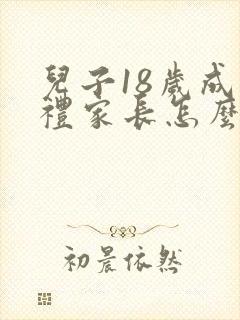 兒子18歲成
禮家長怎麼
初晨依然